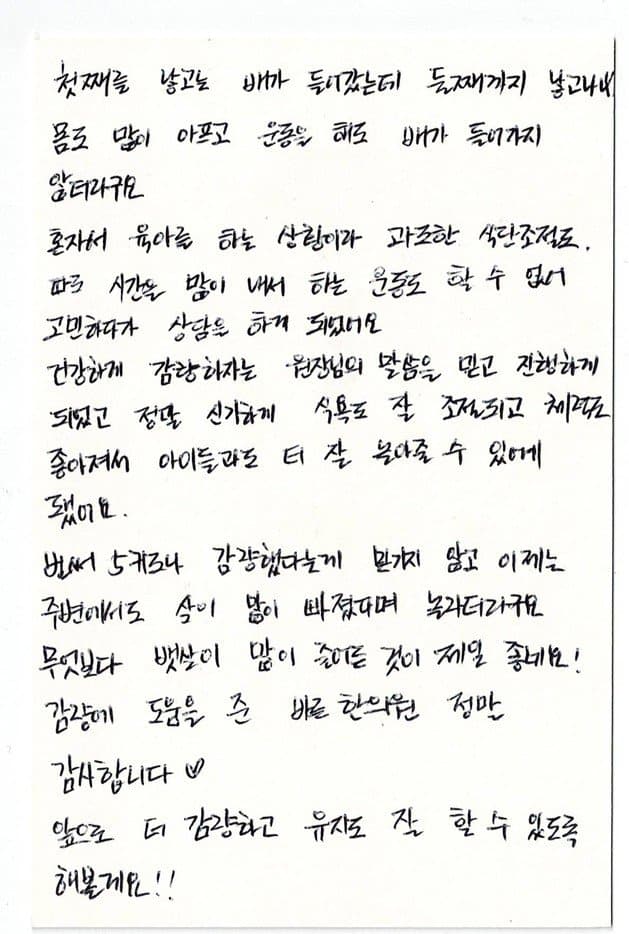 첫째를 낳고는 배가 들어갔는데 둘째까지 낳고나니
몸도 많이 아프고 운동을 해도 배가 들어가지
않더라구요
혼자서 육아를 하는 상황이라 과도한 식단조절도,
따로 시간을 많이 내서 하는 운동도 할 수 없어
고민하다가 상담을 하게 되었어요
건강하게 감량하자는 원장님의 말씀을 믿고 진행하게
되었고 정말 신기하게 식욕도 잘 조절되고 체력도
좋아져서 아이들과도 더 잘 놀아줄 수 있게
됐어요.
벌써 5키로나 감량했다는게 믿기지 않고 이제는
주변에서도 살이 많이 빠졌다며 놀라더라구요
무엇보다 뱃살이 많이 줄어든 것이 제일 좋네요!
감량에 도움을 준 바로 한의원 정말
감사합니다 ♡
앞으로 더 감량하고 유지도 잘 할 수 있도록
해볼게요!!